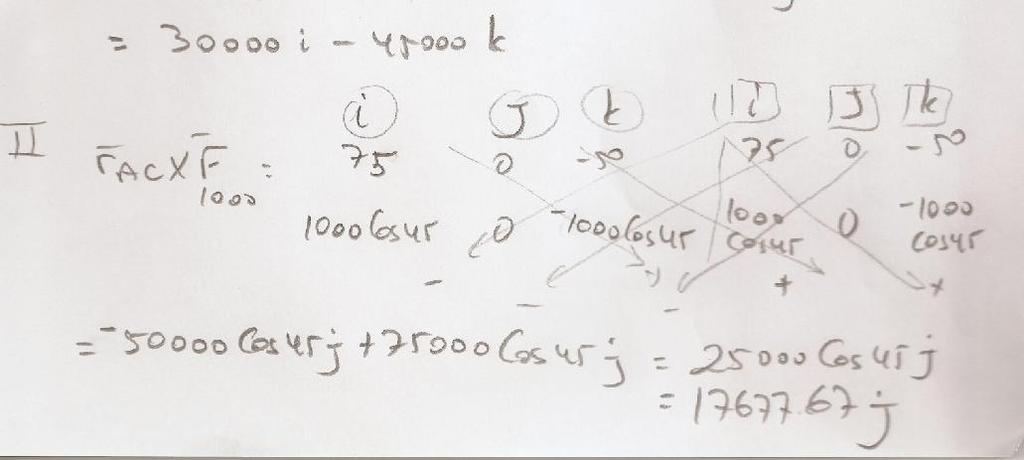 = 30000 i - 45000 k
i J k i J k
II
r̄AC X F̄1000 : 75 0 -50 75 0 -50
1000 Cos45 0 -1000 Cos45 1000 Cos45 0 -1000 Cos45
- - + - + +
= -50000 Cos45 j + 75000 Cos45 j = 25000 Cos45 j
= 17677.67 j